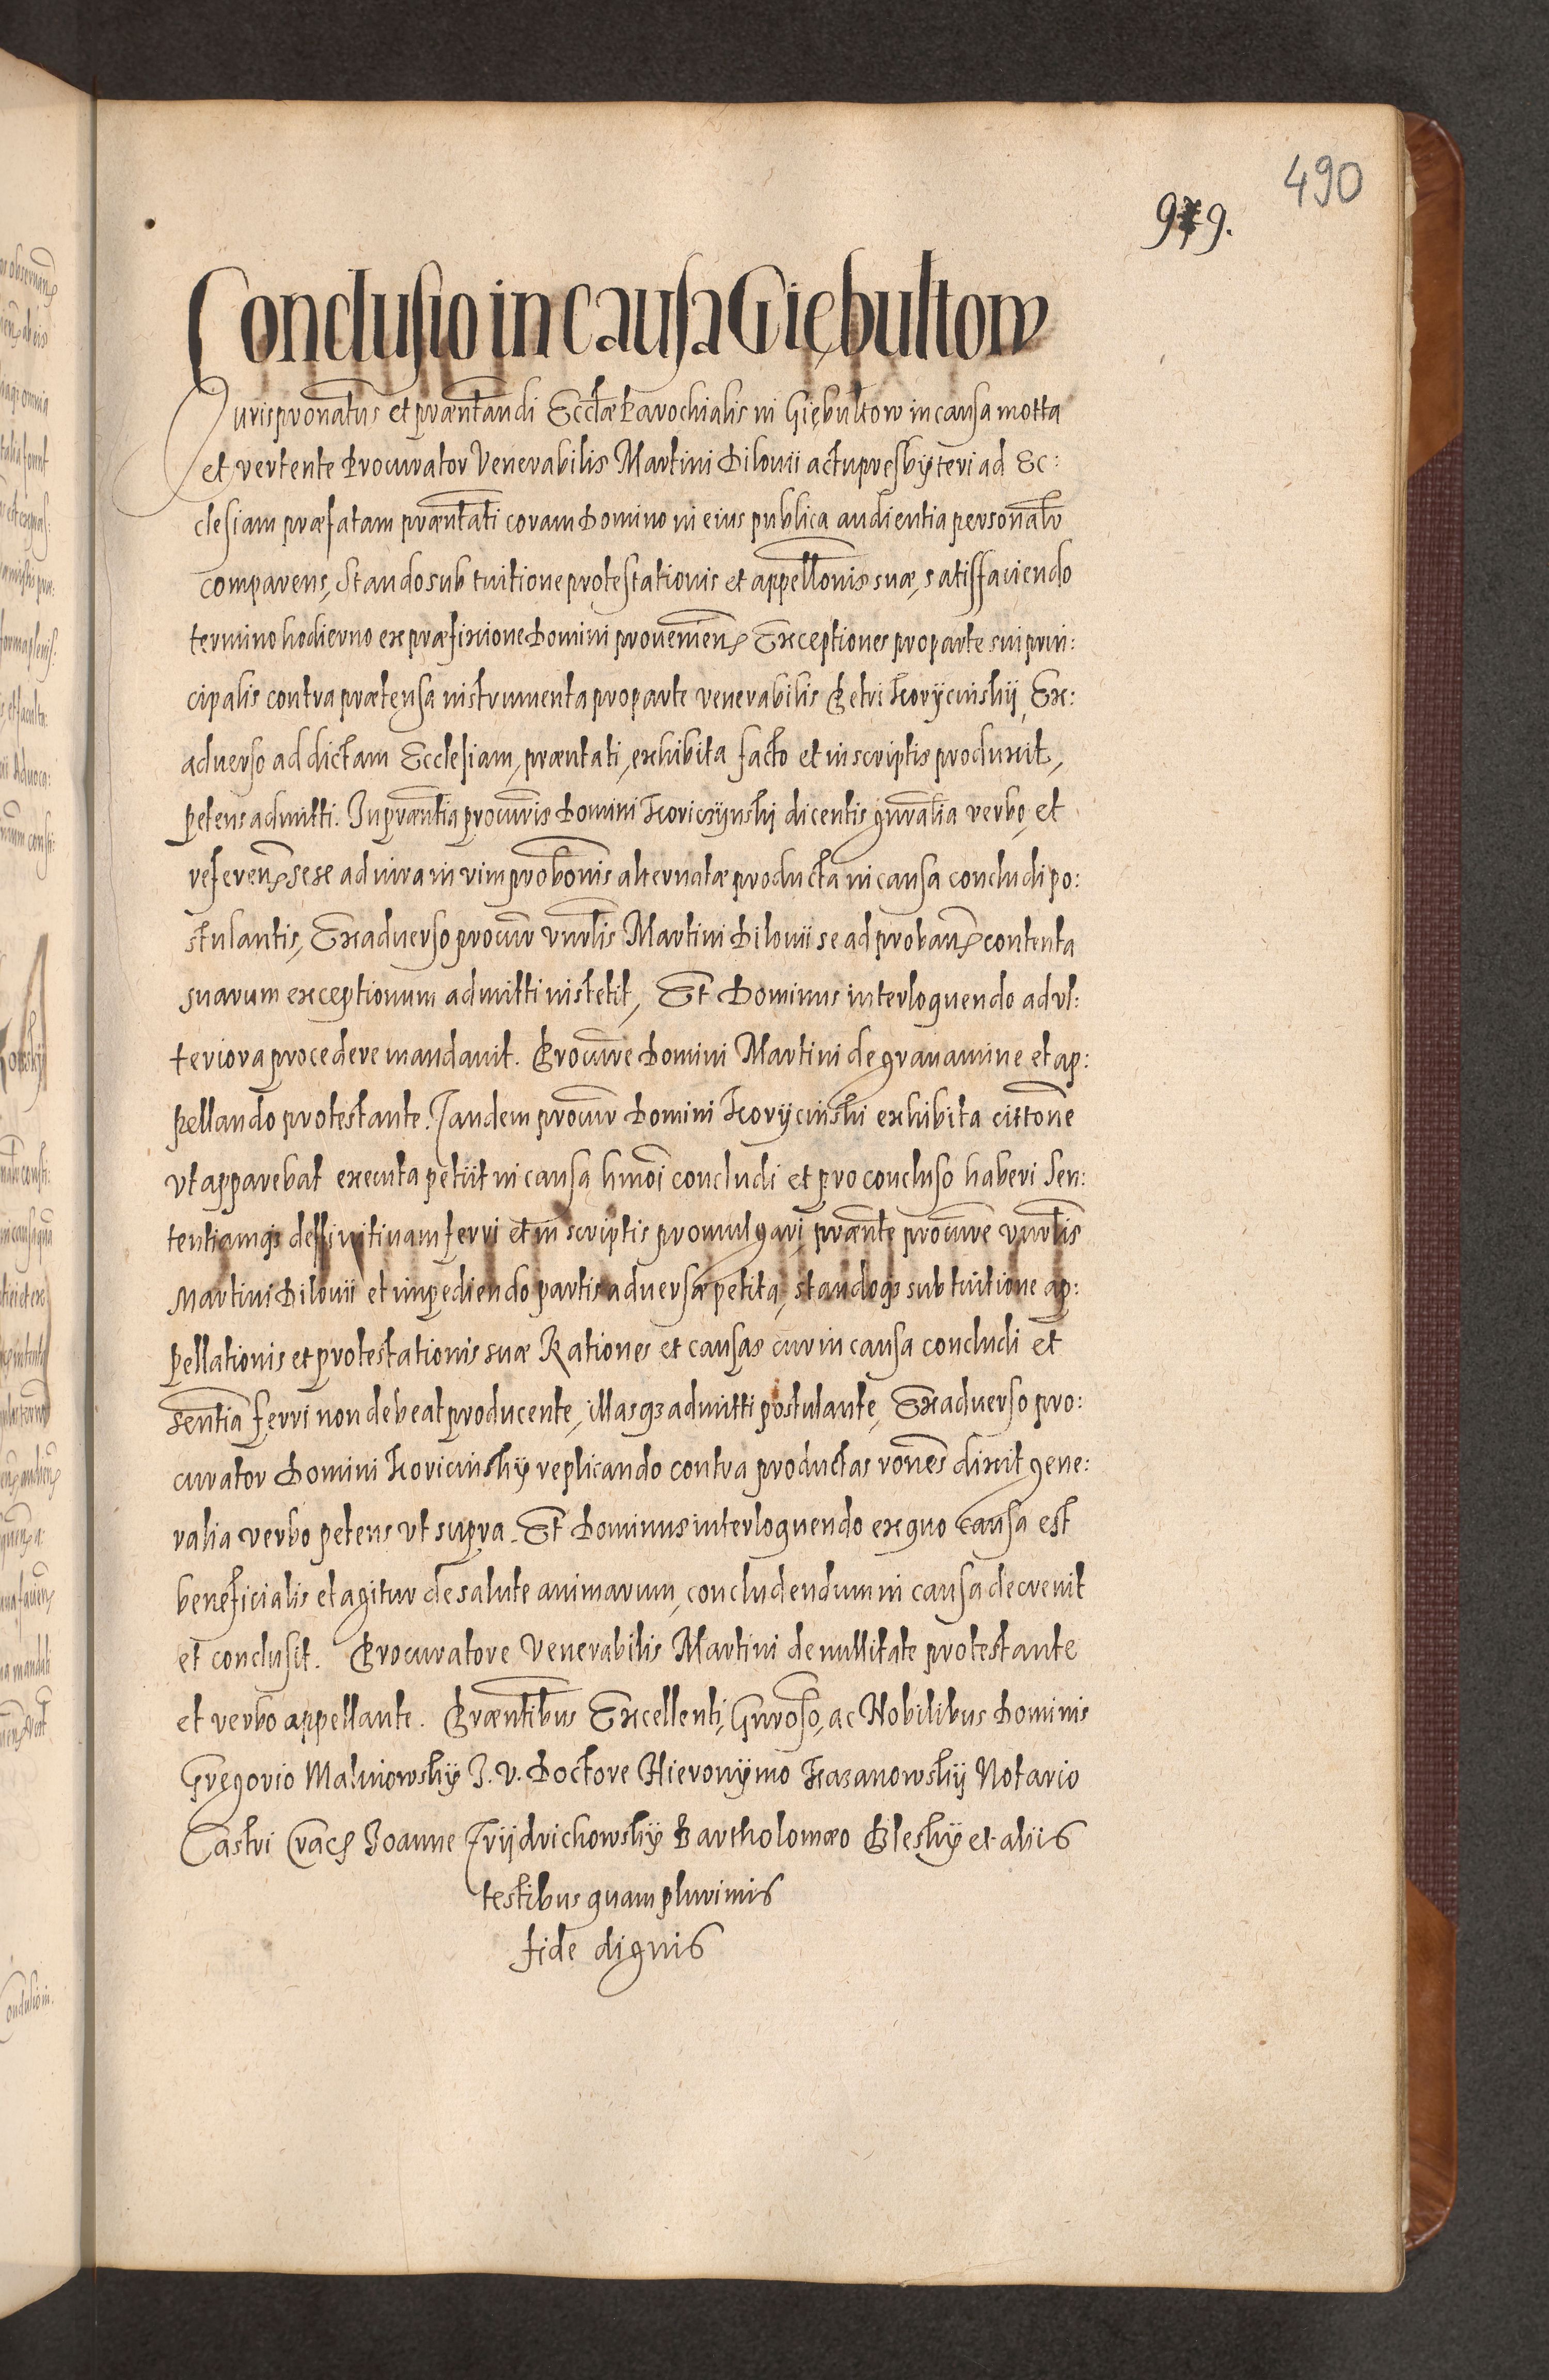 490
979.
Conclusio in causa Giębultow
Jurispronatus et præntandi Ecctæ Parochialis in Giębultow in causa motta
et vertente Procurator Venerabilis Martini Dilouii actu presbyteri ad Ec:
clesiam præfatam præntati coram Domino in eius publica audientia personalr
comparens, Stando sub tuitione protestationis et appellonis suæ, satisfaciendo
termino hodierno ex præfixione Domini prouenien Exceptiones pro parte sui prin:
cipalis contra prætensa instrumenta pro parte venerabilis Petri Korycinskij Ex:
aduerso ad dictam Ecclesiam, præntati, exhibita facto et in scriptis produxit,
petens admitti. In præntia procuris Domini Koriczynski dicentis gnralia verbo, et
referen sese ad iura in vim probonis alternatæ producta in causa concludi po:
stulantis, Ex aduerso procur vnrlis Martini Dilouii se ad proban contenta
suarum exceptionum admitti institit, Et Dominus interloquendo ad vl:
teriora procedere mandauit. Procure Domini Martini de grauamine et ap:
pellando protestante. Tandem procur Domini Korycinski exhibita cittone
vt apparebat executa petiit in causa hmoi concludi et pro concluso haberi Sen:
tentiamqȝ deffinitiuam ferri et in scriptis promulgari, prænte procure vnrlis
Martini Dilouii et impediendo partis aduersæ petita, standoqȝ sub tuitione ap:
pellationis et protestationis suæ Rationes et causas cur in causa concludi et
sentia ferri non debeat producente, illasqȝ admitti postulante, Ex aduerso pro:
curator Domini Koricinskij replicando contra productas rones dixit gene:
ralia verbo petens vt supra. Et Dominus interloquendo ex quo causa est
beneficialis et agitur de salute animarum, concludendum in causa decreuit
et conclusit. Procuratore Venerabilis Martini de nullitate protestante
et verbo appellante. Præntibus Excellenti, Gnroso, ac Nobilibus Dominis
Gregorio Malinowskij J. V. Doctore Hieronymo Kazanowskij Notario
Castri Crac Joanne Frijdrichowskij Bartholomæo Bleskij et aliis
testibus quam plurimis
fide dignis